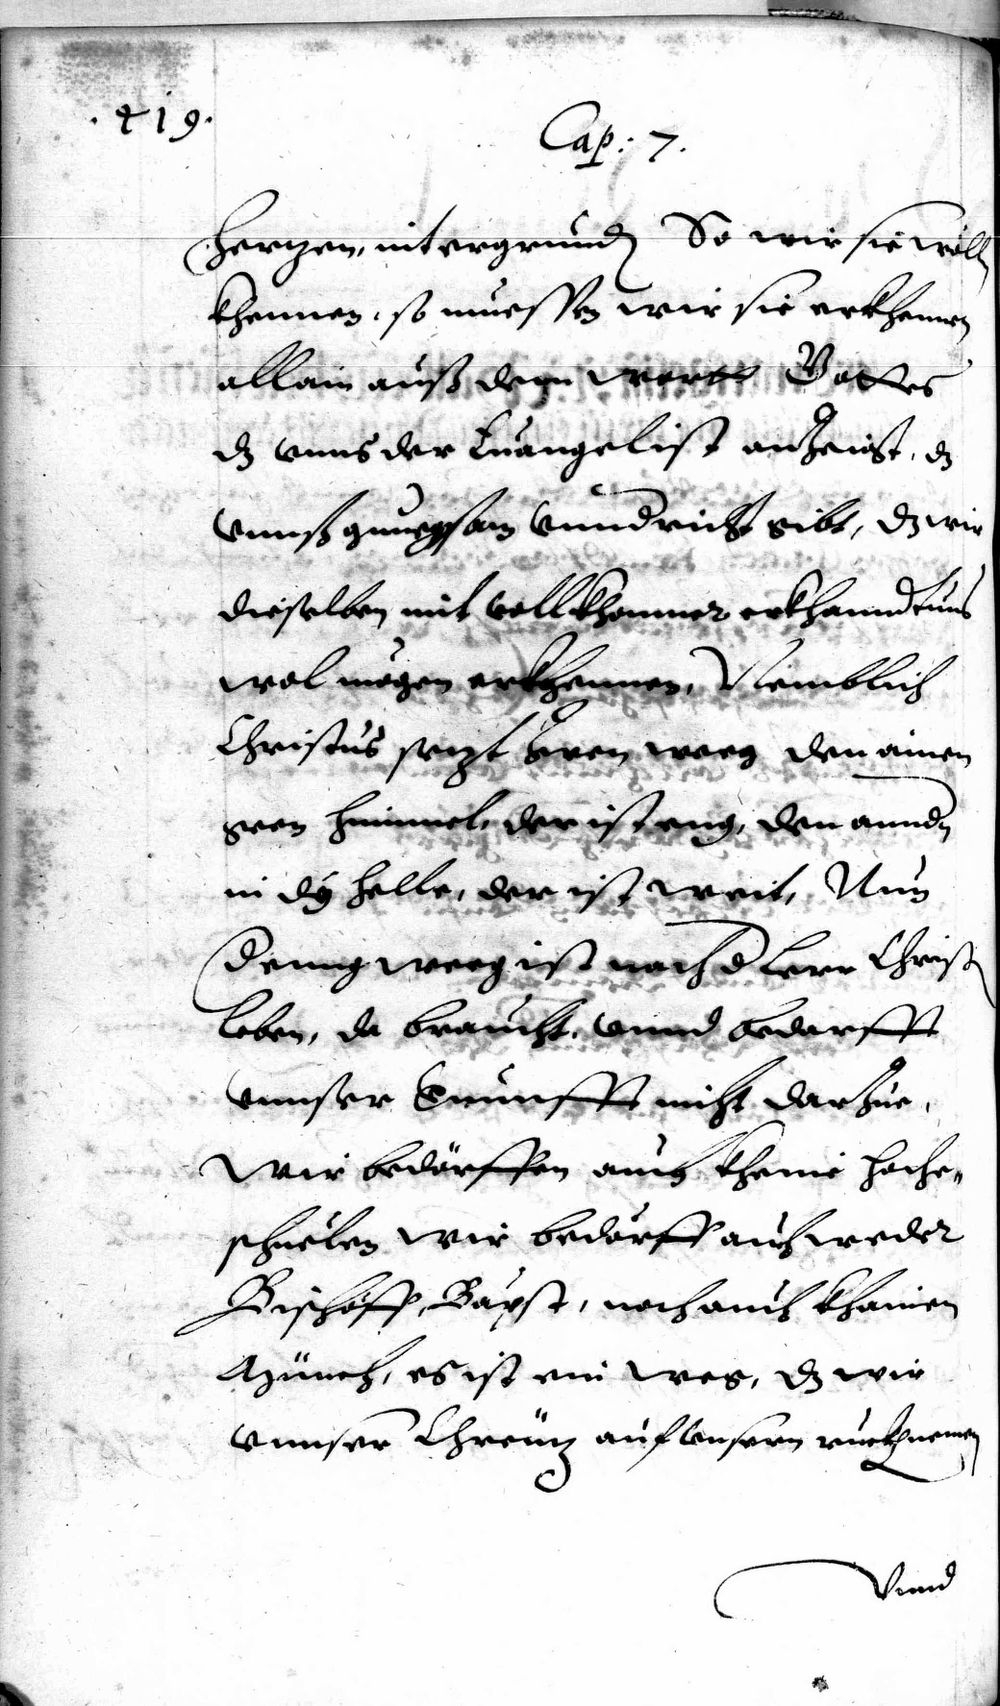 .419.
Cap: 7.
hertzen, nit ergrundn So wir sie wölln
khennen, so muessen wir sie erkhennen
allain auß dem wortt Gottes
dz vnns der Euangelist anzeigt, dz
vnnß gnuegsam vnndricht gibt, dz wir
dieselben mit vollkhommer erkhanndtnus
wol mögen erkhennen, Nemblich
Christus setzt zwen weeg den ainen
gen himmel, der ist eng, den anndn
in dÿ helle, der ist weit, Nun
der eng weeg ist nach d leer Christi
leben, da braucht, vnnd bedarfft
vnnser vernunfft nicht darzue,
Wir bedörffen auch kheine hoche„
schuelen wir bedörff auch weder
Bischoff, Bapst, noch auch khainen
Münch, es ist ein weg, dz wir
vnnser Chreütz auf vnsern ruckh nemen
Vnnd